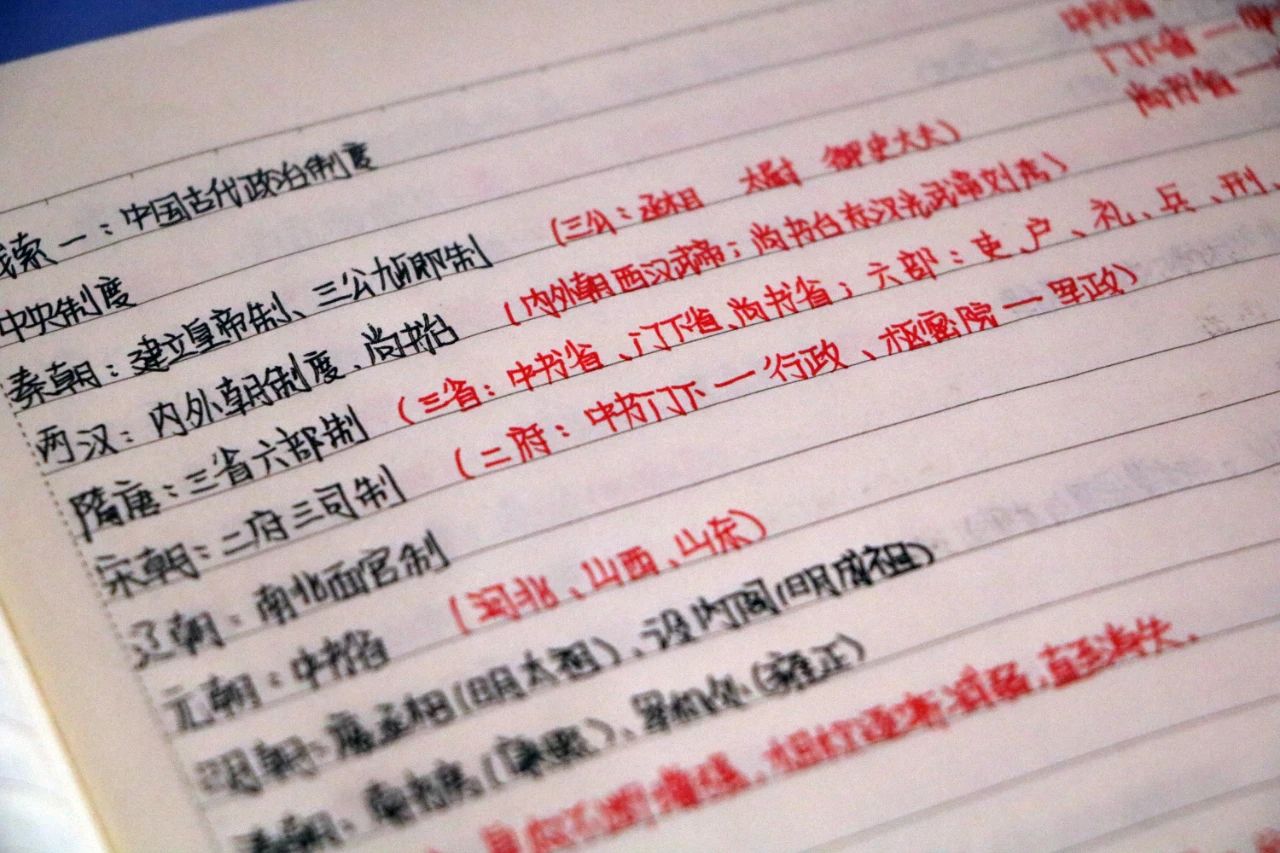 中书省
门下省 一 中
尚书省 一
线索一：中国古代政治制度
中央制度
秦朝：建立皇帝制、三公九卿制 （三公：丞相 太尉 御史大夫）
两汉：内外朝制度、尚书台 （内外朝西汉武帝；尚书台东汉光武帝刘秀）
隋唐：三省六部制 （三省：中书省、门下省、尚书省；六部：吏、户、礼、兵、刑、
宋朝：二府三司制 （二府：中书门下一行政、枢密院一军政）
辽朝：南北面官制
元朝：中书省 （河北、山西、山东）
明朝：废丞相（明太祖）、设内阁（明成祖）
清朝：南书房（康熙）、军机处（雍正）
皇权不断增强，相权逐渐削弱，直至消失。